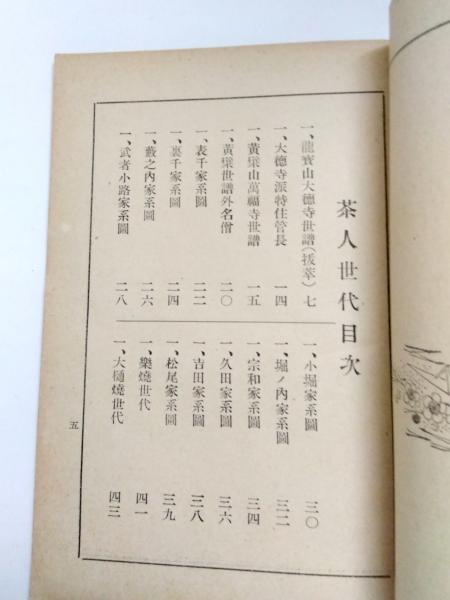 茶人世代目次
一、龍寳山大德寺世譜(拔萃) 七
一、大德寺派特住管長 一四
一、黃檗山萬福寺世譜 一五
一、黃檗世譜外名僧 二〇
一、表千家系圖 二二
一、裏千家系圖 二四
一、藪之內家系圖 二六
一、武者小路家系圖 二八
一、小堀家系圖 三〇
一、堀ノ內家系圖 三二
一、宗和家系圖 三四
一、久田家系圖 三六
一、吉田家系圖 三八
一、松尾家系圖 三九
一、樂燒世代 四一
一、大樋燒世代 四三
五